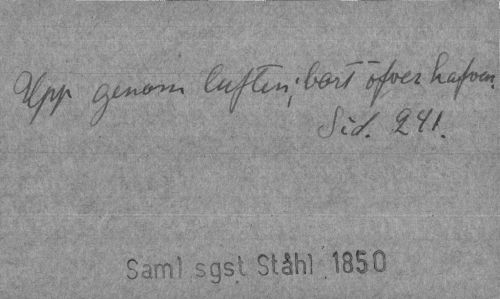 Upp genom luften, bort öfver hafven.
Sid. 241.
Saml sgst Ståhl 1850